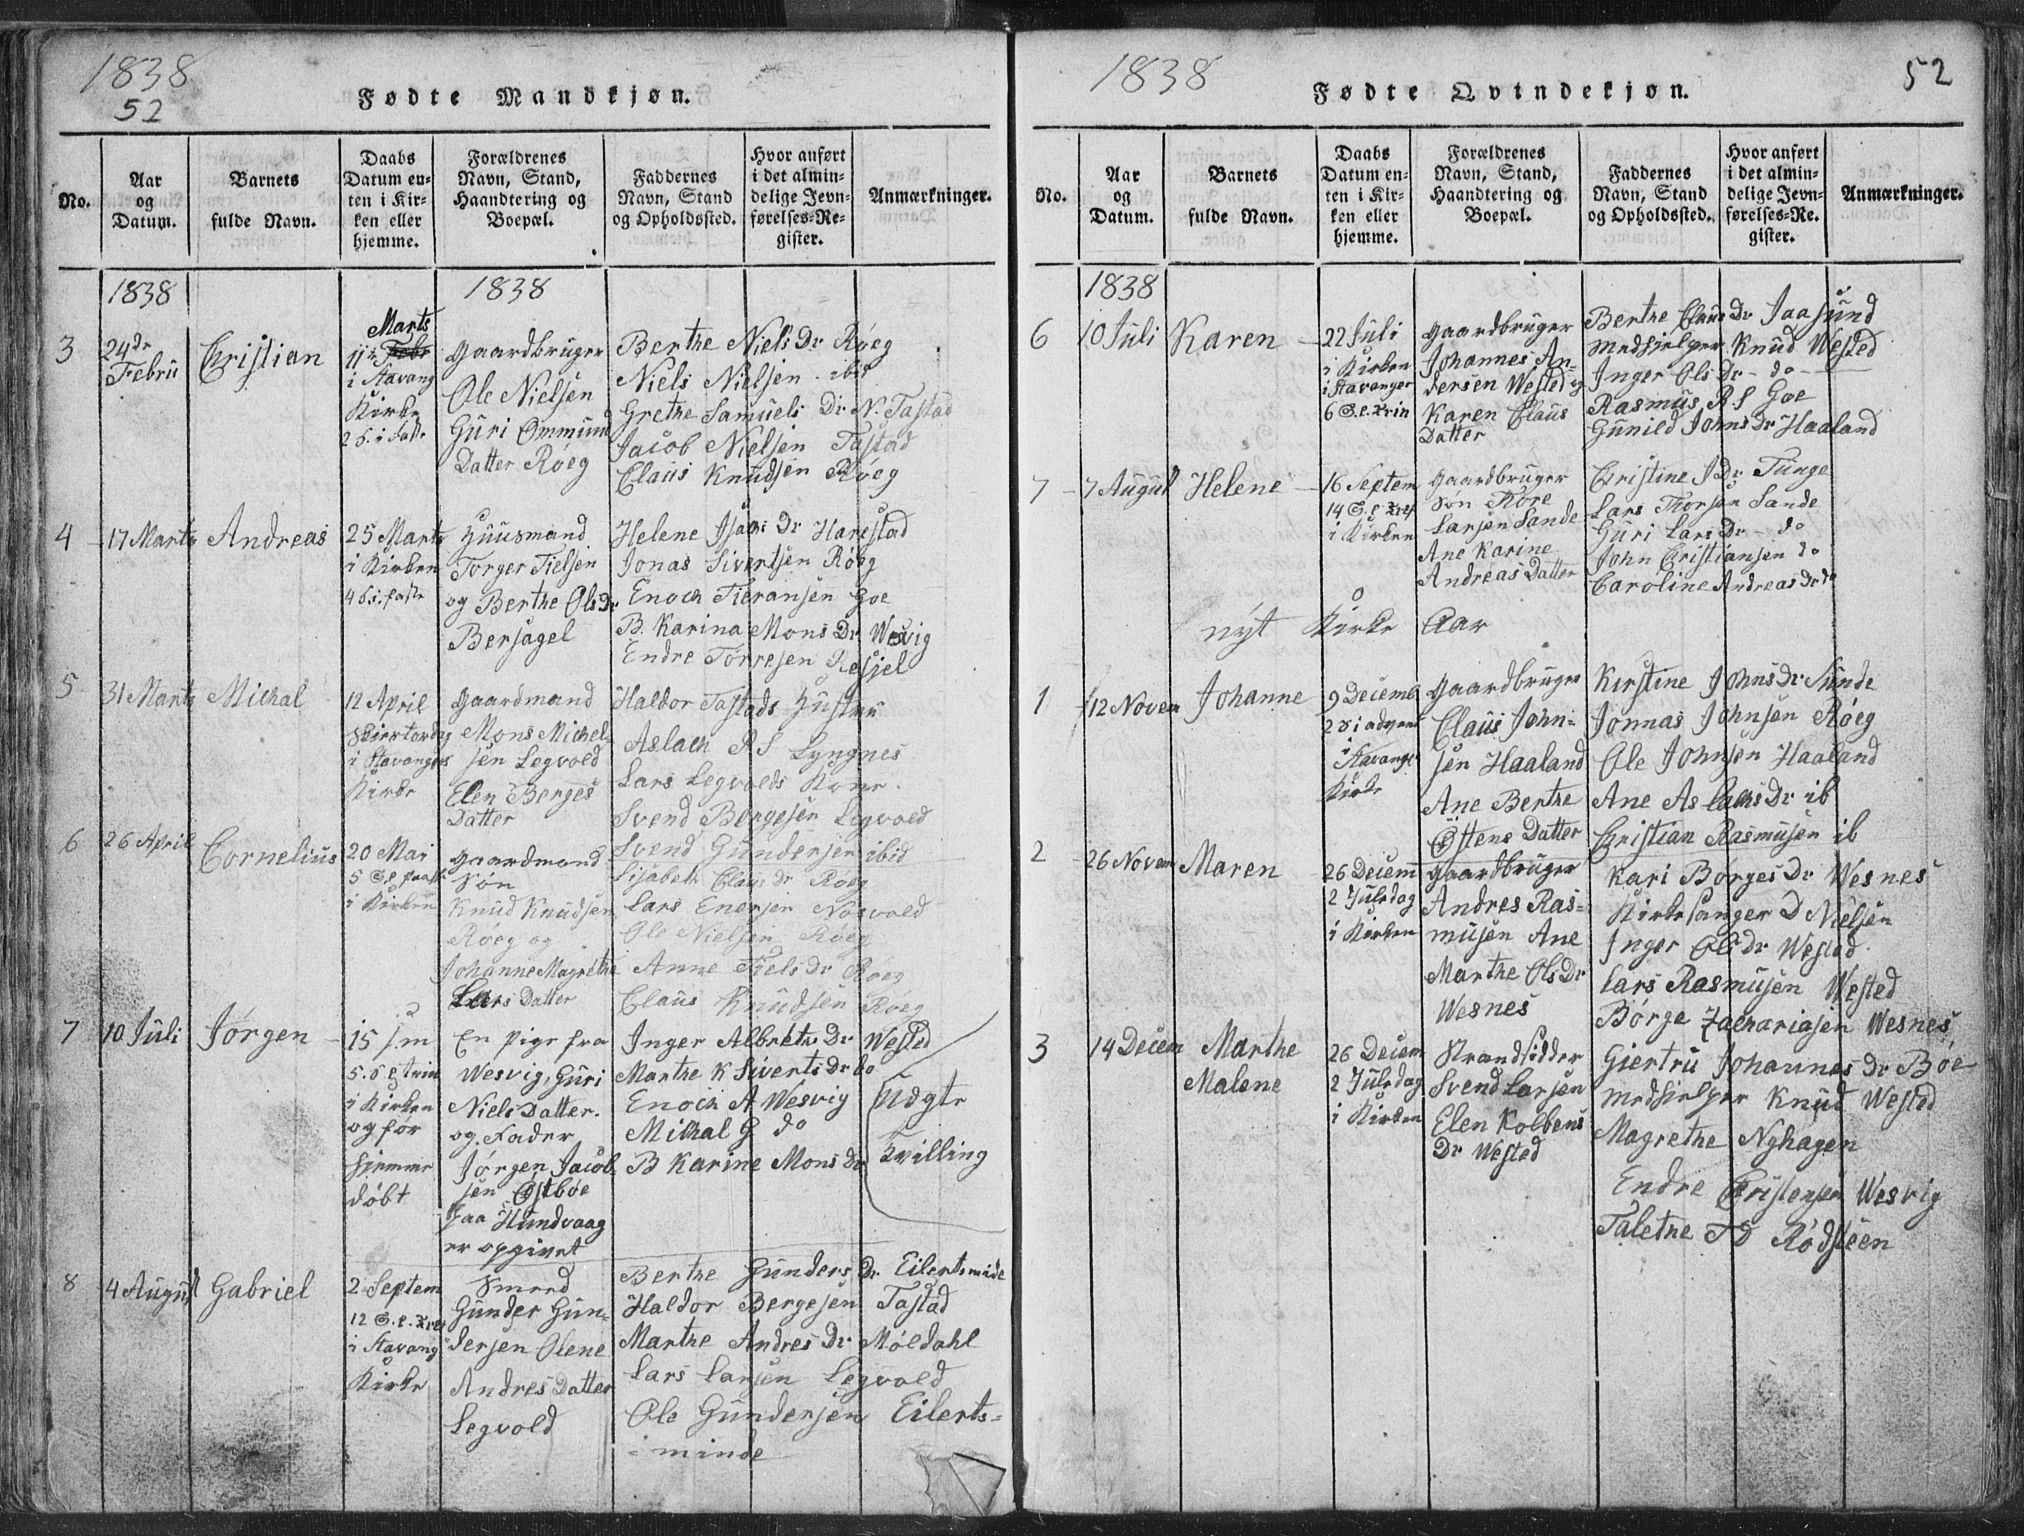 1838
52
Fødte Mandkjøn.
No.
Aar
og
Datum.
Barnets
fulde Navn.
Daabs
Datum en-
ten i Kir-
ken eller
hjemme.
Forældrenes
Navn, Stand,
Haandtering og
Boepæl.
Faddernes
Navn, Stand
og Opholdssted.
Hvor anført
i det almin-
delige Jevn-
førelses-Re-
gister.
Anmærkninger.
1838
1838
3
24de
Febru
Christian
Marts
11te Febr
i Stavang
Kirke
2 S. i Faste
Gaardbruger
Ole Nielsen
Guri Ommund
Datter Røeg
Berthe Niels Dr Røeg
Niels Nielsen ibid
Grethe Samuels Dr N. Tastad
Jacob Nielsen Tastad
Claus Knudsen Røeg
4
17 Marts
Andreas
25 Marts
i Kirken
4 S. i Faste
Huusmand
Torger Tielsen
og Berthe Ols Dr
Bersagel
Helene Isachs Dr Harestad
Jonas Sivertsen Røeg
Enoch Tieransen Goe
B. Karina Mons Dr Wesvig
Endre Torresen Resiel
5
31 Marts
Michal
12 April
Skiertorsdag
i Stavangers
Kirke
Gaardmand
Mons Michel-
sen Legvold
Elen Berges
Datter
Haldor Tastads Hustru
Aslach R S Lyngnes
Lars Legvolds Kone.
Svend Bergesen Legvold
6
26 April
Cornelius
20 Mai
5 S. e. Paask
i Kirken
Gaardmand
Søn
Knud Knudsen
Røeg og
Johanne Magrethe
Lars Datter
Svend Gundersen ibid
Lisabeth Claus Dr Røeg
Lars Enersen Nosvold
Ole Nielsen Røeg
Anne Tiels Dr Røeg
Claus Knudsen Røeg
7
10 Juli
Jørgen
15 J.m
5. S e Trin
i Kirken
og før
hiemme
døbt
En Pige fra
Wesvig, Guri
Niels Datter.
og Fader
Jørgen Jacob
sen Østbøe
paa Hundvaag
er opgivet
Inger Albreths Dr Wested
Marthe K Siverts Dr do
Enoch A Wesvig
Mikal G do
B Karine Mons Dr
Uægte
Tvilling
8
4 August
Gabriel
2 Septem
12 S. e. Tref
i Stavang
Kirke
Smed
Gunder Gun-
dersen Olene
Andres Datter
Legvold
Berthe Gunders Dr Eilertsminde
Haldor Bergesen Tastad
Marthe Andres Dr Møldahl
Lars Larsen Legvold
Ole Gundersen Eilerts-
minde
1838
52
Fødte Qvindekjøn.
No.
Aar
og
Datum.
Barnets
fulde Navn.
Daabs
Datum en-
ten i Kir-
ken eller
hjemme.
Forældrenes
Navn, Stand,
Haandtering og
Boepæl.
Faddernes
Navn, Stand
og Opholdssted.
Hvor anført
i det almin-
delige Jevn-
førelses-Re-
gister.
Anmærkninger.
1838
6
10 Juli
Karen
22 Juli
i Kirken
i Stavanger
6 S. e. Trin
Gaardbruger
Johannes An-
dersen Wested og
Karen Claus
Datter
Berthe Claus Dr Jaasund
Medhielper Knud Wested
Inger Ols Dr - do
Rasmus R S Goe
Gunild Johns Dr Haaland
7
7 August
Helene
16 Septem
14 S. e Tref
i Kirken
Gaardbruger
Søn Tore
Larsen Sande
Ane Karine
Andreas Datter
Christine J Dr Tunge
Lars Thorsen Sande
Guri Lars Dr - do
John Christiansen do
Caroline Andreas Dr do
nyt Kirke Aar
1
12 Novem
Johanne
9 Decemb
2 S i advent
i
Stavanger
Kirke
Gaardbruger
Claus John-
sen Haaland
Ane Berthe
Østens Datter
Kirstine Johns Dr Sunde
Jonnas Johnsen Røeg
Ole Johnsen Haaland
Ane Aslachs Dr ib
Christian Rasmusen ib
2
26 Novem
Maren
26 Decem
2 Juledag
i Kirken
Gaardbruger
Andres Ras-
musen Ane
Marthe Ols Dr
Wesnes
Kari Børges Dr Wesnes
Kirkesanger D Nielsen
Inger Ols Dr Wested
Lars Rasmusen Wested
Børge Zachariasen Wesnes
3
14 Decem
Marthe
Malene
26 Decem
2 Juledag
i Kirken
Strandsidder
Svend Larsen
Elen Kolbens
Dr Wested
Giertru Johannes Dr Bøe
Medhielper Knud Wested
Magrethe Nyhagen
Endre Christensen Wesvig
Talethe T D Rødsteen